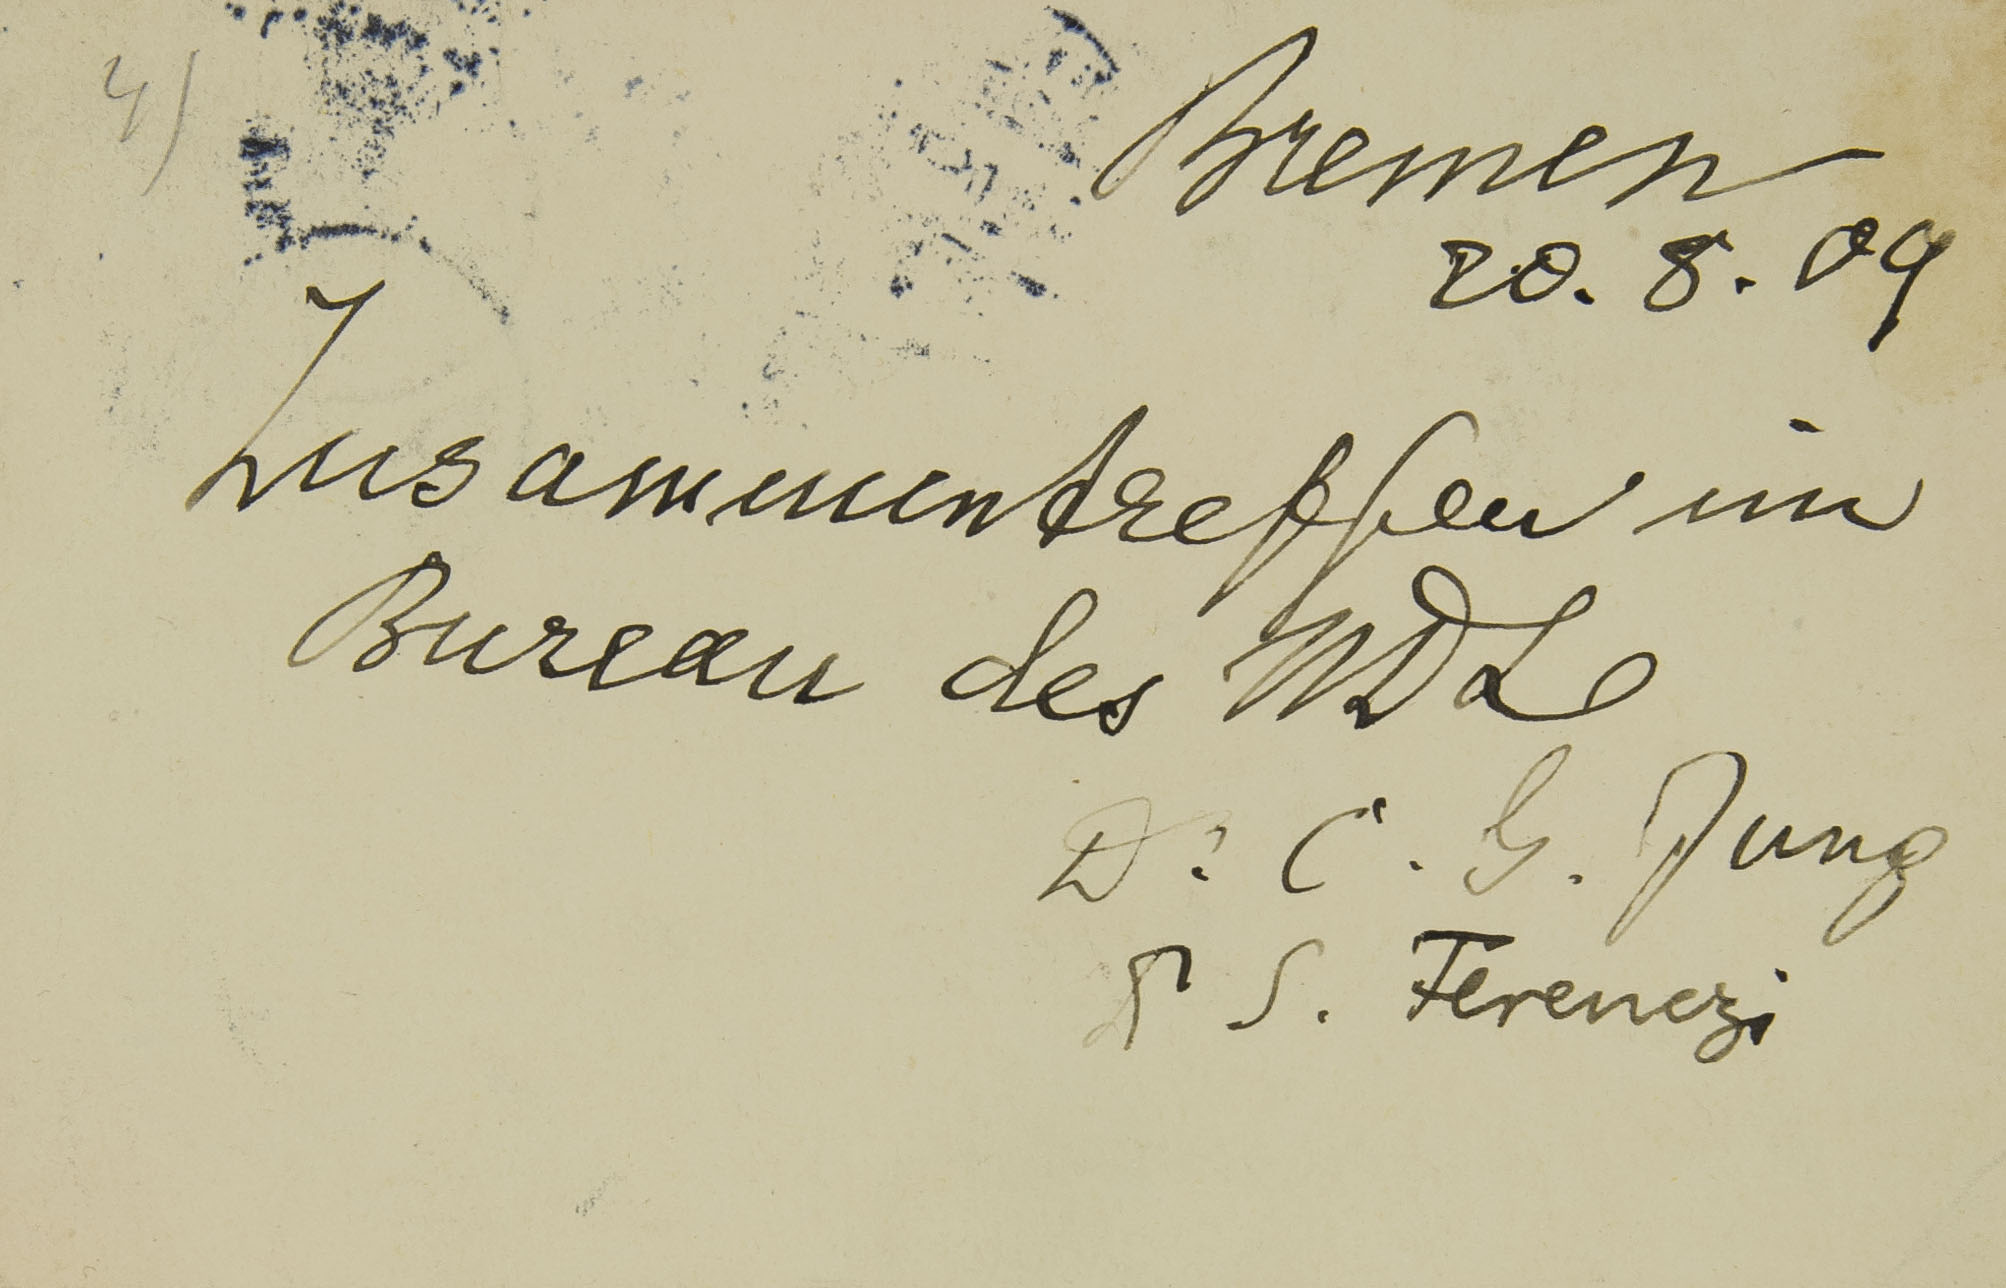 4)
Bremen
20. 8. 09
Zusammentreffen im
Bureau des NDL
Dr. C. G. Jung
Dr S. Ferenczi